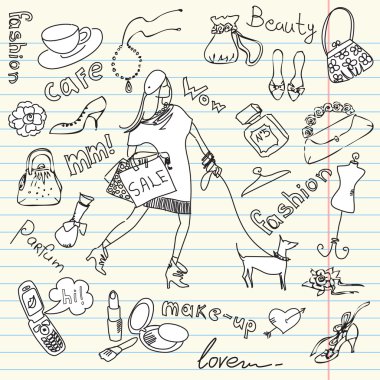 Beauty
fashion
cafe
Wow
mm!
N°5
SALE
fashion
Parfum
hi!
make-up
love